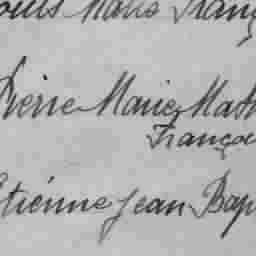 Louis Marie Franç
Pierre Marie Math
Franço
Etienne Jean Bap